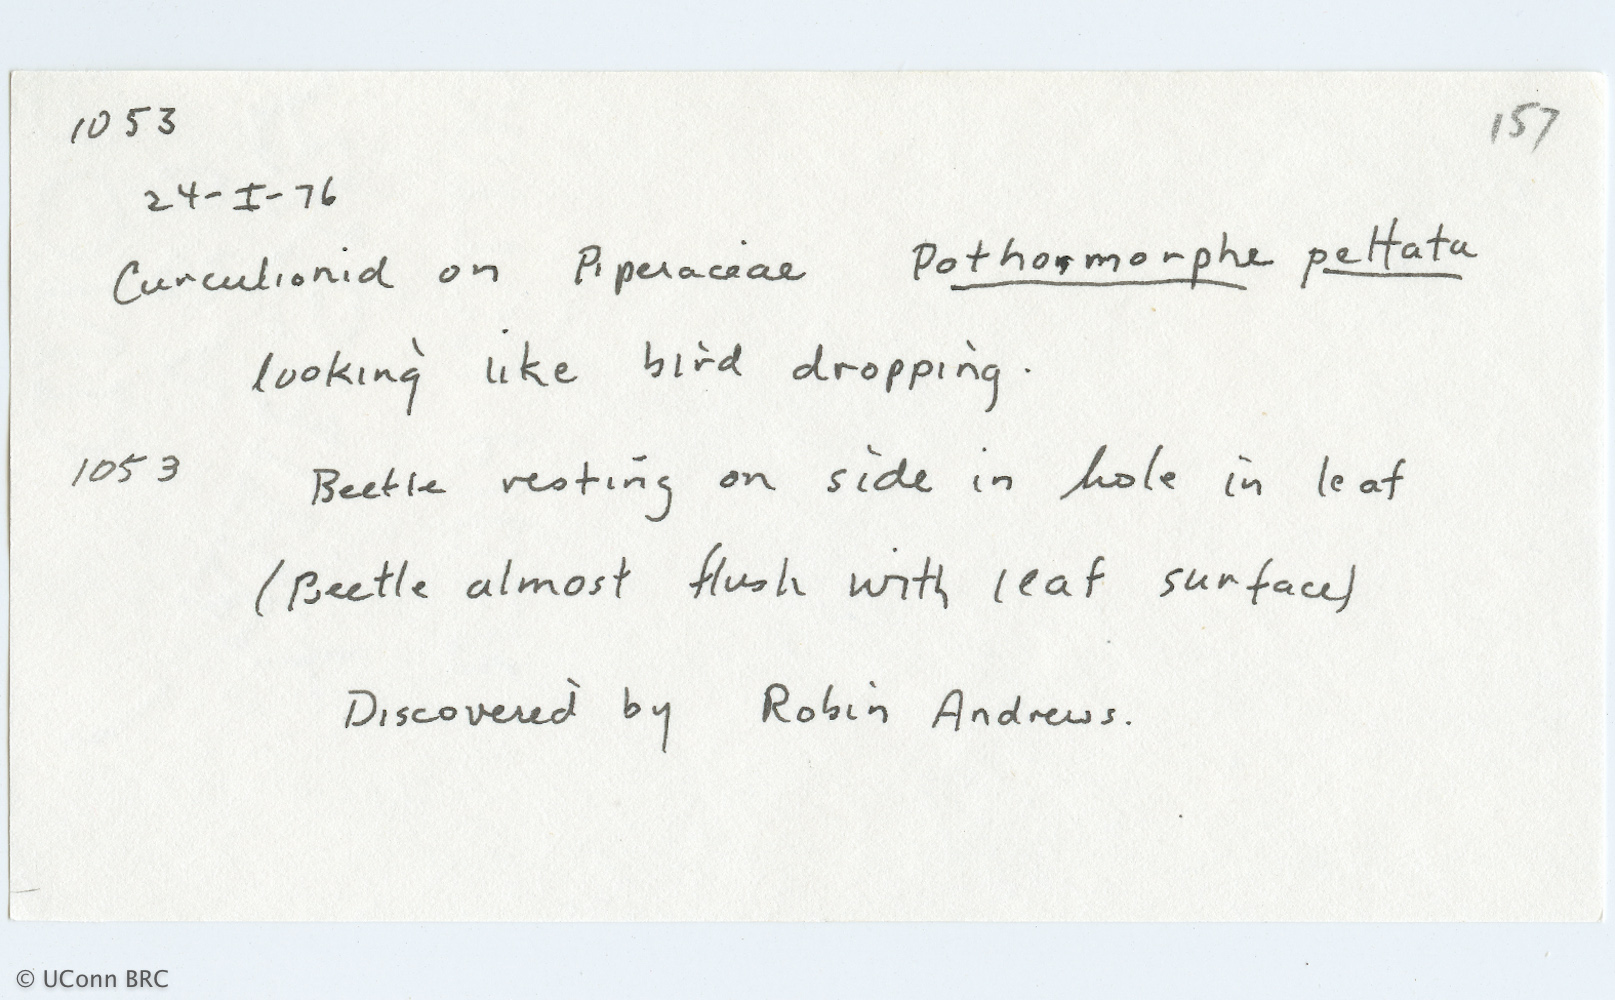 1053 157
24-I-76
Curculionid on Piperaceae Pothormorphe peltata
looking like bird dropping.
1053 Beetle resting on side in hole in leaf
(Beetle almost flush with leaf surface)
Discovered by Robin Andrews.
© UConn BRC